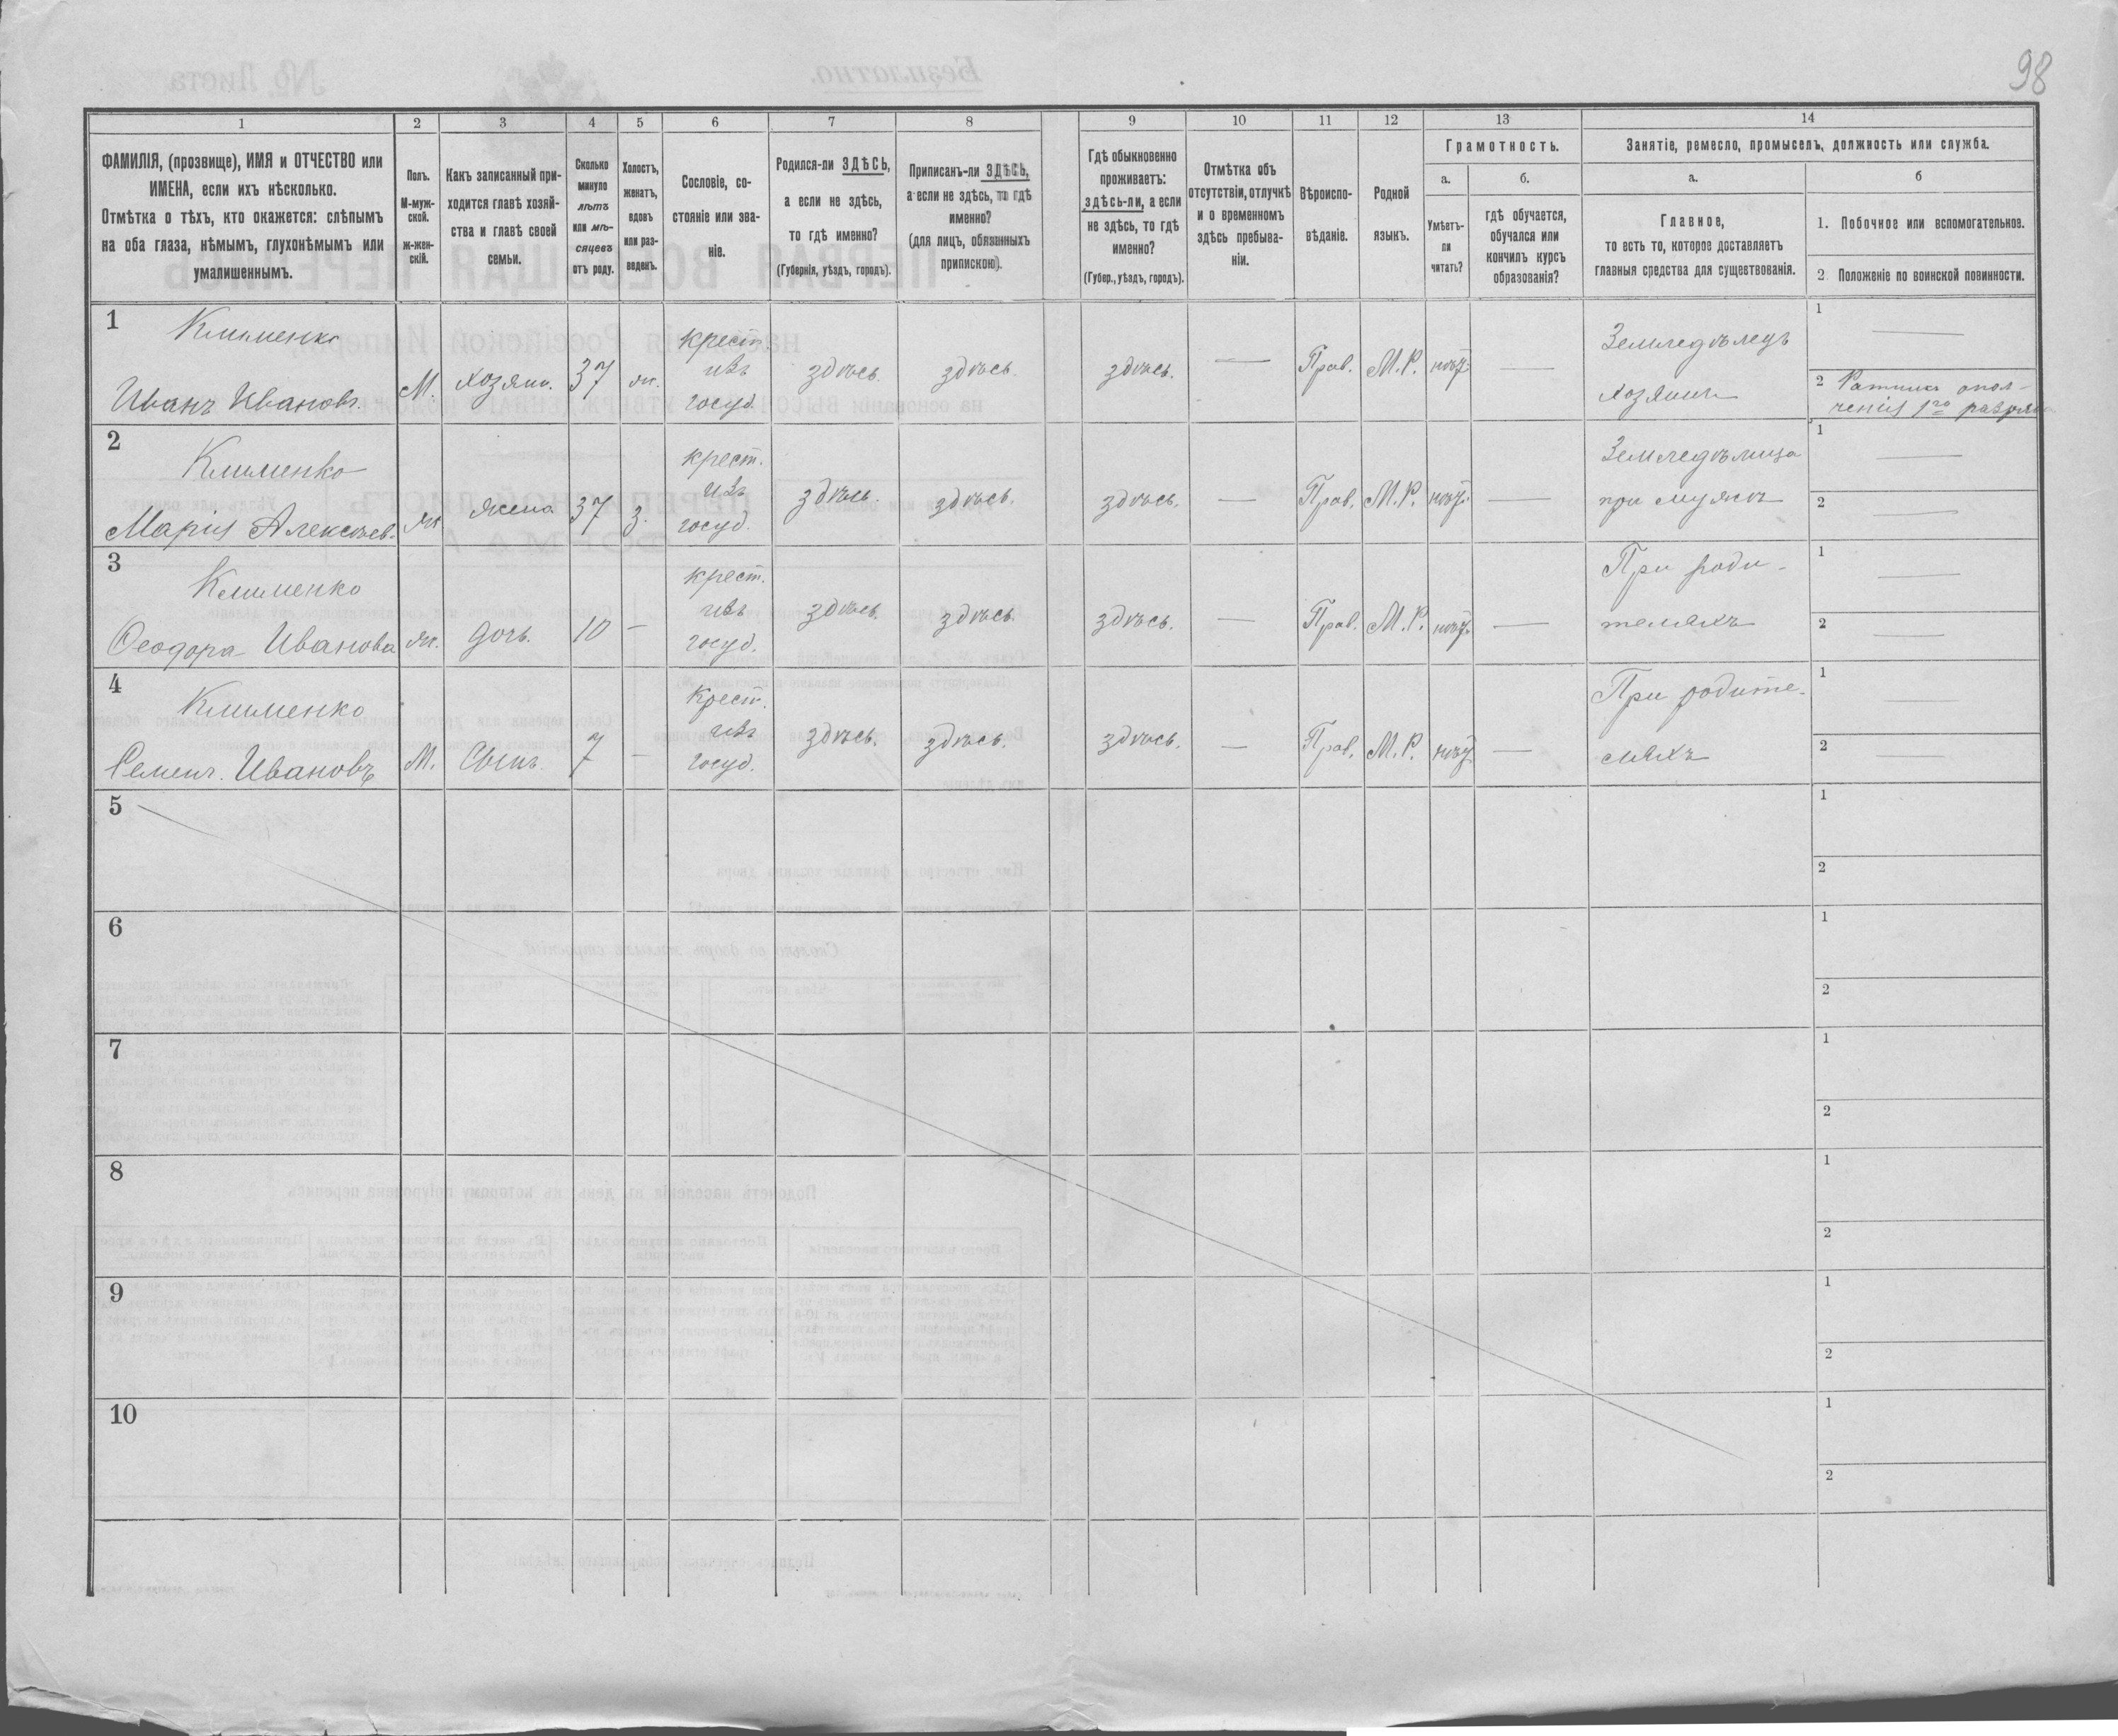 98
1 2 3 4 5 6 7 8 9 10 11 12 13 14
ФАМИЛІЯ, (прозвище), ИМЯ и ОТЧЕСТВО или
ИМЕНА, если ихъ нѣсколько.
Отмѣтка о тѣхъ, кто окажется: слѣпымъ
на оба глаза, нѣмымъ, глухонѣмымъ или
умалишеннымъ.
Полъ.
М-муж-
ской.
ж-жен-
скій.
Какъ записанный при-
ходится главѣ хозяй-
ства и главѣ своей
семьи.
Сколько
минуло
лѣтъ
или мѣ-
сяцевъ
отъ роду.
Холостъ,
женатъ,
вдовъ
или раз-
веденъ.
Сословіе, со-
стояніе или зва-
ніе.
Родился-ли ЗДѢСЬ,
а если не здѣсь,
то гдѣ именно?
(Губернія, уѣздъ, городъ).
Приписанъ-ли ЗДѢСЬ,
а если не здѣсь, то гдѣ
именно?
(для лицъ, обязанныхъ
припискою).
Гдѣ обыкновенно
проживаетъ:
здѣсь-ли, а если
не здѣсь, то гдѣ
именно?
(Губер., уѣздъ, городъ).
Отмѣтка объ
отсутствіи, отлучкѣ
и о временномъ
здѣсь пребыва-
ніи.
Вѣроиспо-
вѣданіе.
Родной
языкъ.
Грамотность.
а.
Умѣетъ-
ли
читать?
б.
гдѣ обучается,
обучался или
кончилъ курсъ
образованія?
Занятіе, ремесло, промыселъ, должность или служба.
а.
Главное,
то есть то, которое доставляетъ
главныя средства для существованія.
б
1. Побочное или вспомогательное.
2. Положеніе по воинской повинности.
1
Клименко
Иванъ Ивановъ.
М.
хозяин.
37
ж.
крест.
изъ
госуд.
здѣсь.
здѣсь.
здѣсь.
—
Прав.
М.Р.
нѣт
—
Земледѣлецъ
хозяинъ
1 —
2 Ратникъ опол-
ченія 1го разряда
2
Клименко
Марія Алексѣев.
ж
жена
37
з.
крест.
изъ
госуд.
здѣсь.
здѣсь.
здѣсь.
—
Прав.
М.Р.
нѣт
—
Земледѣлица
при мужѣ
1 —
2 —
3
Клименко
Ѳеодора Иванова
ж.
дочь.
10
—
крест.
изъ
госуд.
здѣсь.
здѣсь.
здѣсь.
—
Прав.
М.Р.
нѣт
—
При роди-
теляхъ
1 —
2 —
4
Клименко
Семенъ Ивановъ
М.
Сынъ.
7
—
Крест.
изъ
госуд.
здѣсь.
здѣсь.
здѣсь.
—
Прав.
М.Р.
нѣт
—
При родите-
ляхъ
1 —
2 —
5
1
2
6
1
2
7
1
2
8
1
2
9
1
2
10
1
2